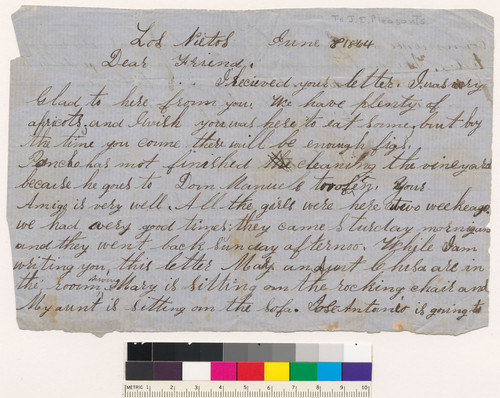 To J.E. Pleasants
Los Nietos June 8 1864
Dear Frrend.
I recieved your letter. I was very
Glad to here fromm you. We have plenty of
apricots, and I wish you was here to eat some, but by
the time you come there will be enough figs.
Poncho has not finished the cleaning the vineyard
because he goes to Dom Manuels too ofen. Your
Amigo is very well. All the girls were here two weeks ago
we had a very good times: they came Sturday morning
and they went back Sunday afterneo. Whyle I am
writing you, this letter Mary and are in
the room, Mary is sitting on the rocking chair and
My aunt is sitting on the sofa. Jose Antonio is going to
METRIC 1 2 3 4 5 6 7 8 9 10